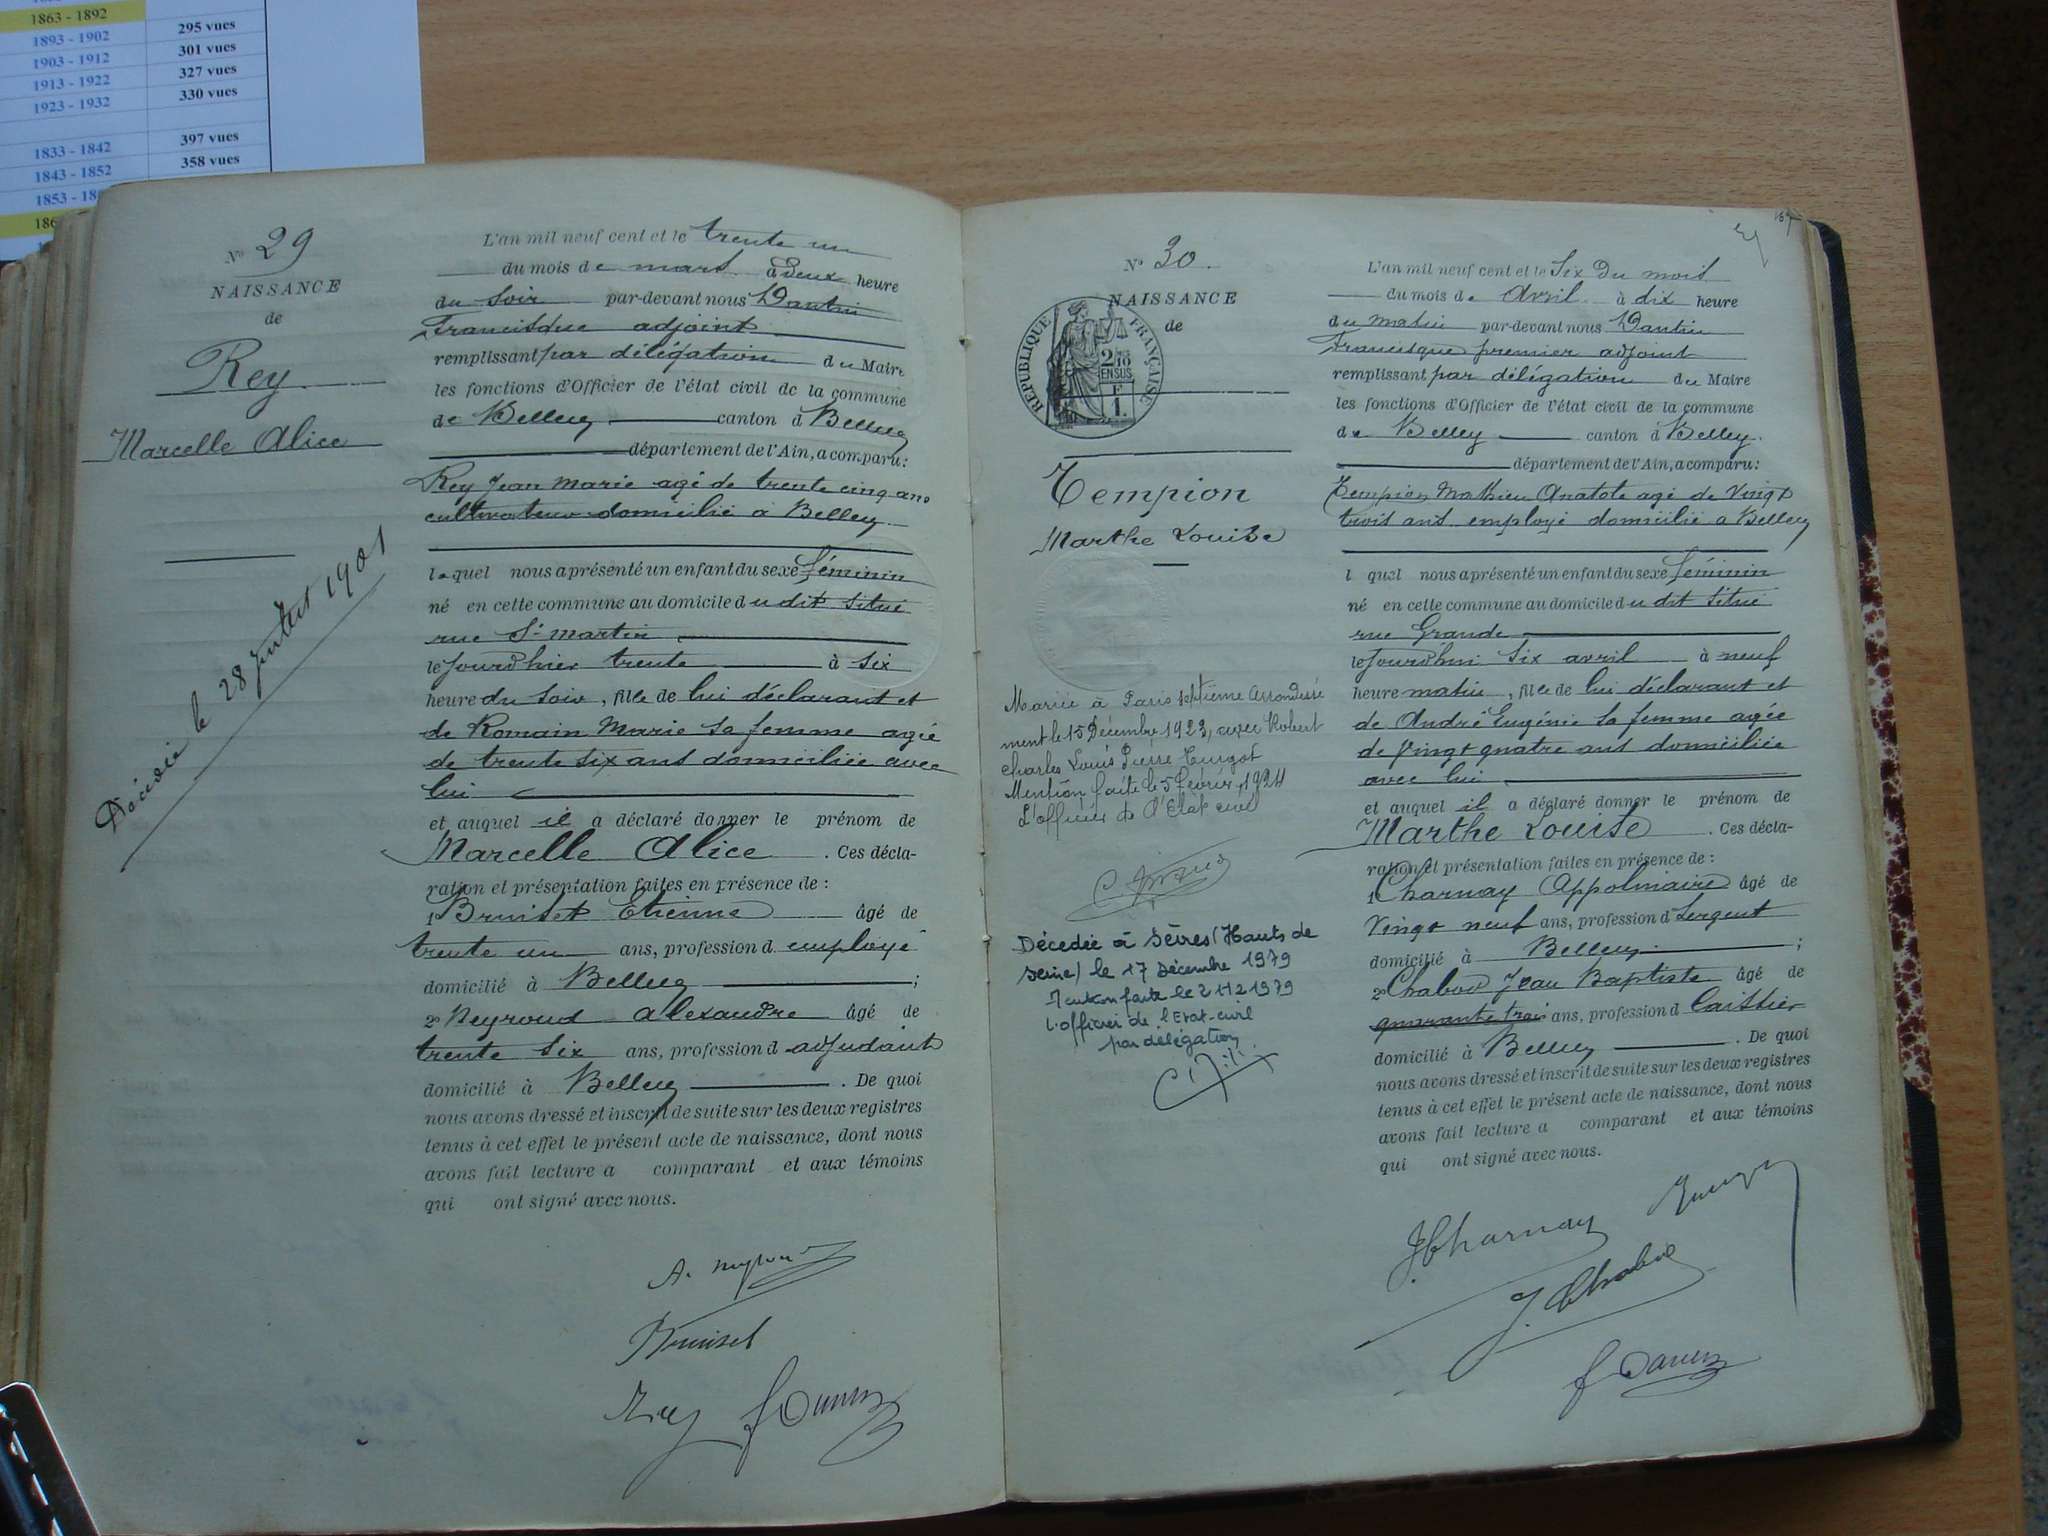 1863 - 1892
1893 - 1902 295 vues
1903 - 1912 301 vues
1913 - 1922 327 vues
1923 - 1932 330 vues
1833 - 1842 397 vues
1843 - 1852 358 vues
1853 - 18
186
N° 29
NAISSANCE
de
Rey
Marcelle Alice
Décédée le 28 Juillet 1901
L'an mil neuf cent et le trente un
du mois de mars à deux heure
du soir par-devant nous Dantin
Francisque adjoint
remplissant par délégation du Maire
les fonctions d'Officier de l'état civil de la commune
de Belley canton d Belley
département de l'Ain, a comparu:
Rey Jean Marie agé de trente cinq ans
cultivateur domicilié à Belley
lequel nous a présenté un enfant du sexe féminin
né en cette commune au domicile du dit situé
rue St Martin
le jourd'hier trente à six
heure du soir, fille de lui déclarant et
de Romain Marie sa femme agée
de trente six ans domiciliée avec
lui
et auquel il a déclaré donner le prénom de
Marcelle Alice. Ces décla-
ration et présentation faites en présence de:
1° Bruiset Etienne âgé de
trente un ans, profession d employé
domicilié à Belley;
2° Neyroud Alexandre âgé de
trente six ans, profession d adjudant
domicilié à Belley. De quoi
nous avons dressé et inscrit de suite sur les deux registres
tenus à cet effet le présent acte de naissance, dont nous
avons fait lecture a comparant et aux témoins
qui ont signé avec nous.
Bruiset
Rey
N° 30.
NAISSANCE
de
RÉPUBLIQUE FRANÇAISE
2/10 EN SUS
1.
Tempion
Marthe Louise
Mariée à Paris septième arrondisse
ment le 15 Décembre 1923, avec Robert
Charles Louis Pierre Turgot
Mention faite le 5 février 1924
L'officier de l'Etat civil
Décédée à Sèvres (Hauts de
Seine) le 17 Décembre 1979
Mention faite le 21 12 1979
L'officier de l'Etat-civil
par délégation
167
L'an mil neuf cent et le Six du mois
du mois de Avril à dix heure
du matin par-devant nous Dantin
Francisque premier adjoint
remplissant par délégation du Maire
les fonctions d'Officier de l'état civil de la commune
de Belley canton d Belley.
département de l'Ain, a comparu:
Tempion Mathieu Anatole agé de Vingt
trois ans employé domicilié a Belley
l quel nous a présenté un enfant du sexe féminin
né en cette commune au domicile du dit situé
rue Grande
le jourdhui six avril à neuf
heure matin, fille de lui déclarant et
de André Eugénie sa femme agée
de vingt quatre ans domiciliée
avec lui
et auquel il a déclaré donner le prénom de
Marthe Louise. Ces décla-
ration et présentation faites en présence de:
1° Charnay Appolinaire âgé de
Vingt neuf ans, profession d Sergent
domicilié à Belley;
2° Chabod Jean Baptiste âgé de
quarante trois ans, profession d Caissier
domicilié à Belley. De quoi
nous avons dressé et inscrit de suite sur les deux registres
tenus à cet effet le présent acte de naissance, dont nous
avons fait lecture a comparant et aux témoins
qui ont signé avec nous.
Charnay